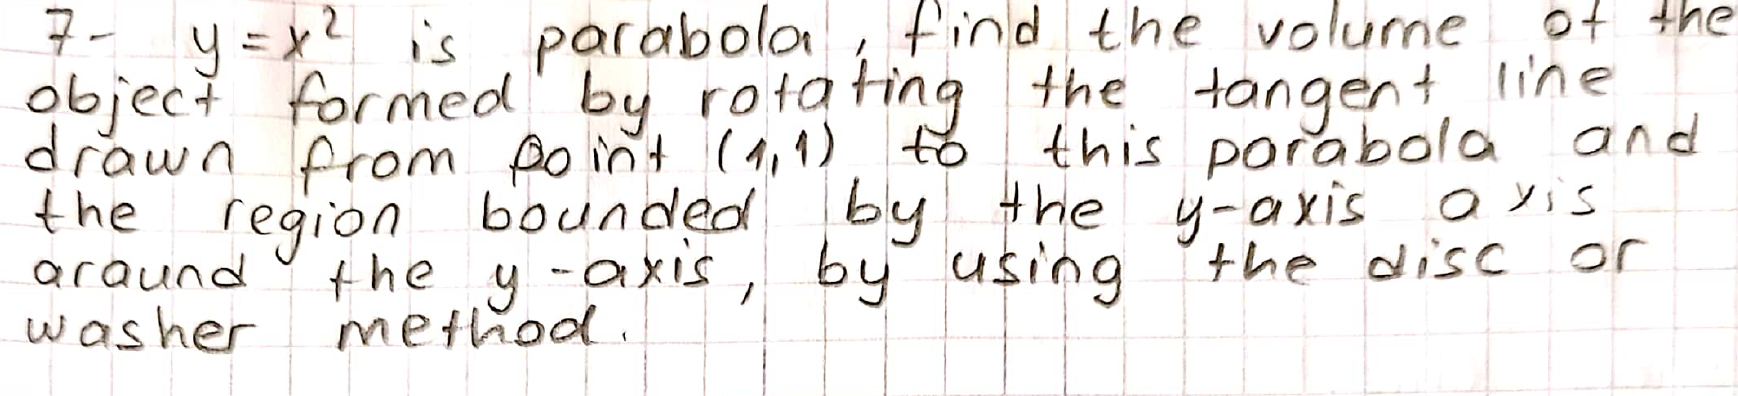 7- y=x² is parabola, find the volume of the
object formed by rotating the tangent line
drawn from point (1,1) to this parabola and
the region bounded by the y-axis axis
araund the y-axis, by using the disc or
washer method.